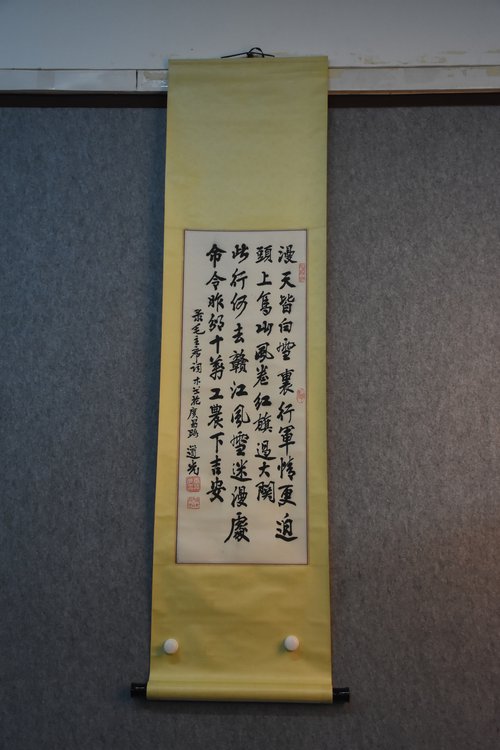 漫天皆白雪裏行軍情更迫
頭上高山風卷紅旗過大關
此行何去贛江風雪迷漫處
命令昨頒十萬工農下吉安
录毛主席词木兰花廣昌路